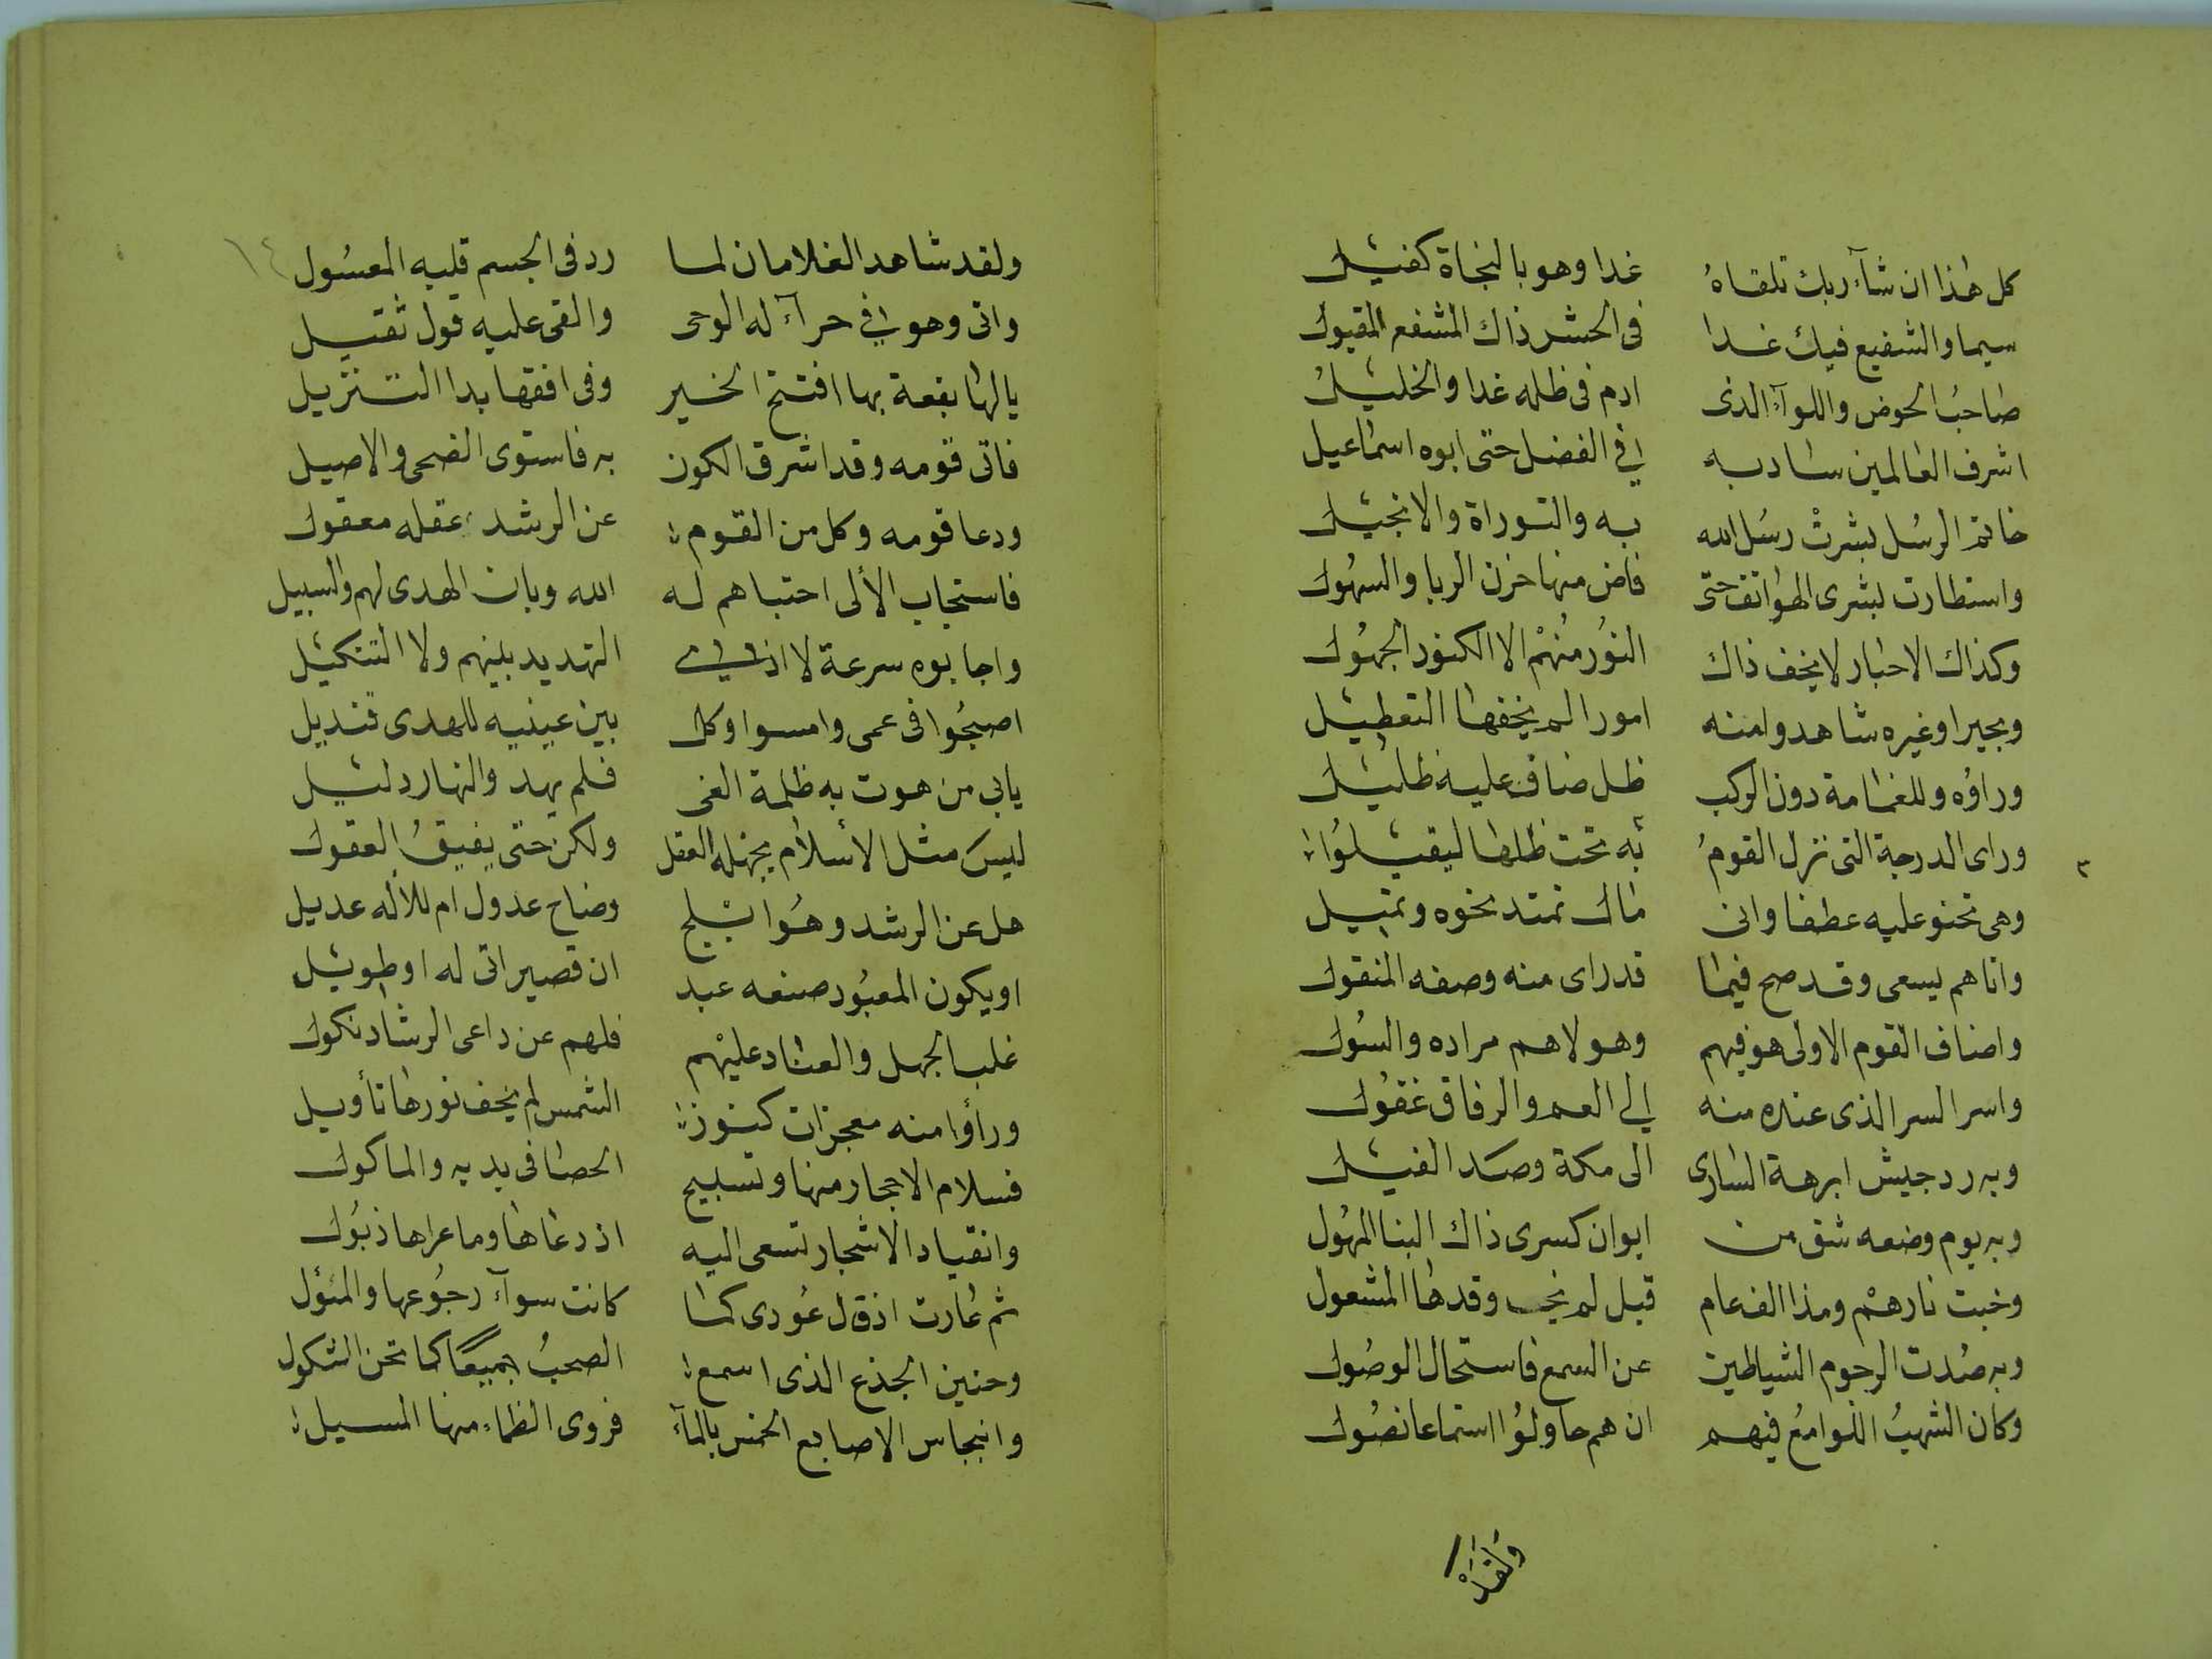 كل هذا ان شآء ربك تلقاهُ غدا وهو بالنجاة كفيل
سيما والشفيع فيك غدا فى الحشر ذاك المشفع المقبول
صاحبُ الحوض واللوآء الذى ادم فى ظله غدا والخليلُ
اشرف العالمين ساد به فى الفضل حتى ابوه اسماعيل
خاتم الرسُل بشرتْ رسُل الله به والتوراة والانجيل
واستطارت بشرى الهواتف حتى فاض منها حزن الربا والسهُول
وكذاك الاحبار لا يخف ذاك النُور منهُمْ الا الكنود الجهُول
وبحيرا وغيره شاهدوا منه امورا لم يخفها التعطيل
وراوُه وللغمامة دون الركب ظل ضاف عليه ظليل
وراى الدرجة التى نزل القومُ به تحت ظلها ليقيلُوا
وهى تحنو عليه عطفا وانى مال تمتد نحوه وتميل
واتاهم يسعى وقد صح فيما قد راى منه وصفه المنقول
واضاف القوم الاولى هو فيهم وهو لا هم مراده والسُول
واسر السر الذى عنده منه الى العم والرفاق غفُول
وبه رد جيش ابرهة السارى الى مكة وصد الفيل
وبه يوم وضعه شق من ايوان كسرى ذاك البنا المهُول
وخبت نارهمْ ومذ الف عام قبل لم يخب وقدها المشعول
وبه صُدت الرجوم الشياطين عن السمع فاستحال الوصُول
وكان الشهبُ اللوامعُ فيهم ان هم حاولُوا استماعا نصُول
وَلَقَدْ
ولقد شاهد الغلامان لما رد فى الجسم قلبه المغسُول
واتى وهو فى حرآء له الوحى والقى عليه قول ثقيل
يالها بقعة بها افتتح الخير وفى افقها بدا التنزيل
فاتى قومه وقد اشرق الكون به فاستوى الضحى والاصيل
ودعا قومه وكل من القوم عن الرشد عقله معقول
فاستجاب الألى اجتباهم له الله وبان الهدى لهم والسبيل
واجابوه سرعة لا اذى التهديد بينهم ولا التنكيل
اصبحُوا فى عمى وامسوا وكل بين عينيه للهدى قنديل
يا بى من هوت به ظلمة الغى فلم يهد والنهار دليل
ليسَ مثل الأسلام يجهله العقل ولكن حتى يفيقُ العقول
هل عن الرشد وهُو ابلج وضاح عدول ام للأله عديل
او يكون المعبُود صنعه عبد ان قصير اتى له او طويل
غلب الجهل والعناد عليْهم فلهم عن داعى الرشاد نكول
ورأوا منه معجزات كنور الشمس لم يخف نورها تأويل
فسلام الاحجار منها وتسبيح الحصا فى يديه والماكول
وانقياد الاشجار تسعى اليه اذ دعاها وما عراها ذبُول
ثم عارت اذ قال عُودى كما كانت سوآء رجُوعها والمئول
وحنين الجذع الذى اسمع الصحبُ جميعًا كما تحن الثكول
وانبجاس الاصابع الخمس بالمآء فروى الظماء منها المسيل